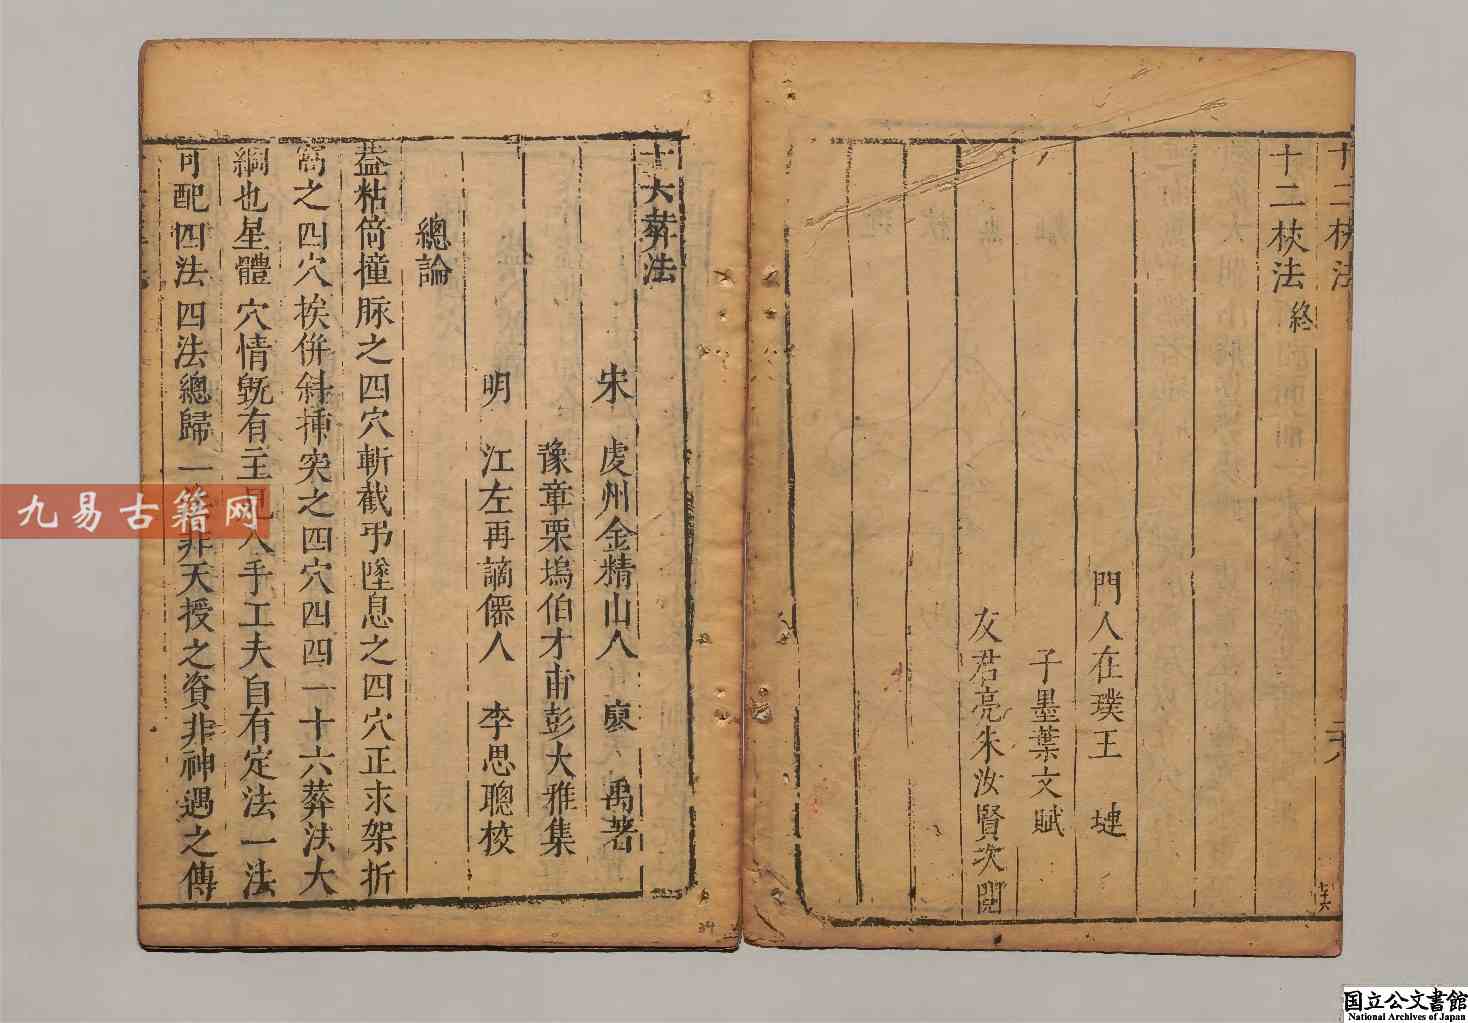 十二杖法
十二杖法 終
門人在璞王 堰
子墨葉文賦
友君亮朱汝賢次閱
十六葬法
宋 虔州金精山人 廖 禹著
豫章栗塢伯才甫彭大雅集
明 江左再謫僊人 李思聰校
總論
蓋粘倚撞脉之四穴斬截弔墜息之四穴正求架折
窩之四穴挨併斜揷突之四穴四四一十六葬法大
綱也星體穴情旣有主見入手工夫自有定法一法
可配四法四法總歸一 非天授之資非神遇之傳
九易古籍网
国立公文書館
National Archives of Japan